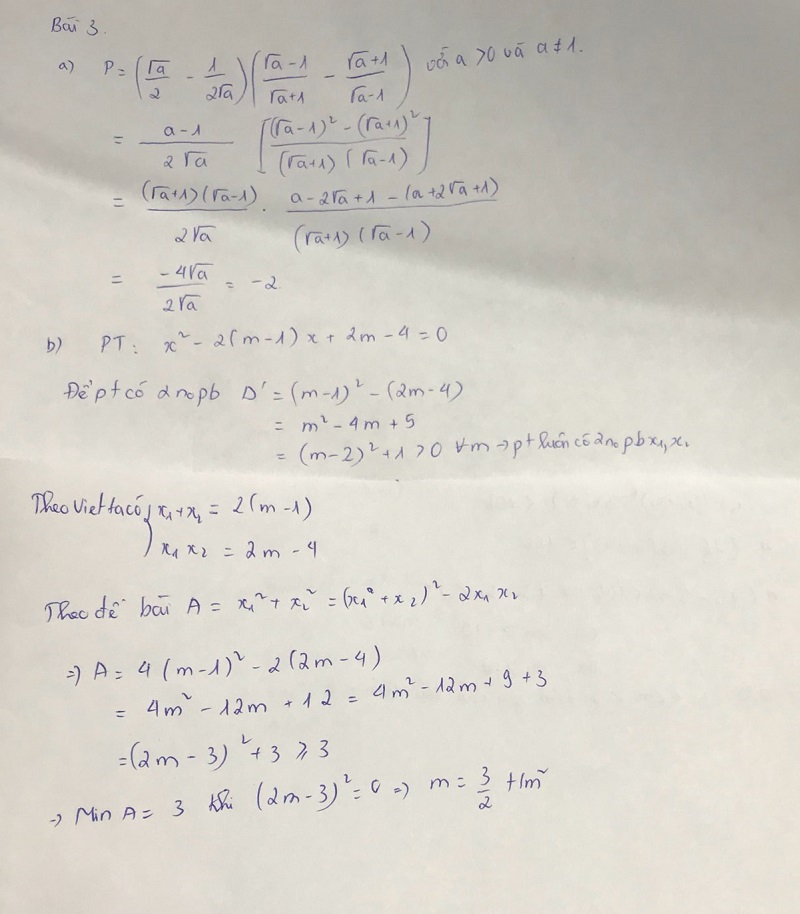 Bài 3.
a) P = (√a/2 - 1/2√a)(√a-1/√a+1 - √a+1/√a-1) với a >0 và a ≠ 1.
= a-1/2√a [(√a-1)² - (√a+1)²/(√a+1)(√a-1)]
= (√a+1)(√a-1)/2√a . a-2√a+1-(a+2√a+1)/(√a+1)(√a-1)
= -4√a/2√a = -2
b) PT: x² - 2(m-1)x + 2m - 4 = 0
Để pt có 2 no pb Δ' = (m-1)² - (2m-4)
= m² - 4m + 5
= (m-2)² + 1 > 0 ∀m → pt luôn có 2 no pb x₁, x₂
Theo Viet ta có { x₁+x₂ = 2(m-1)
x₁ x₂ = 2m - 4
Theo đề bài A = x₁² + x₂² = (x₁² + x₂)² - 2x₁ x₂
=) A = 4(m-1)² - 2(2m-4)
= 4m² - 12m + 12 = 4m² - 12m + 9 + 3
= (2m - 3)² + 3 ⩾ 3
→ Min A = 3 khi (2m-3)² = 0 => m = 3/2 t/m